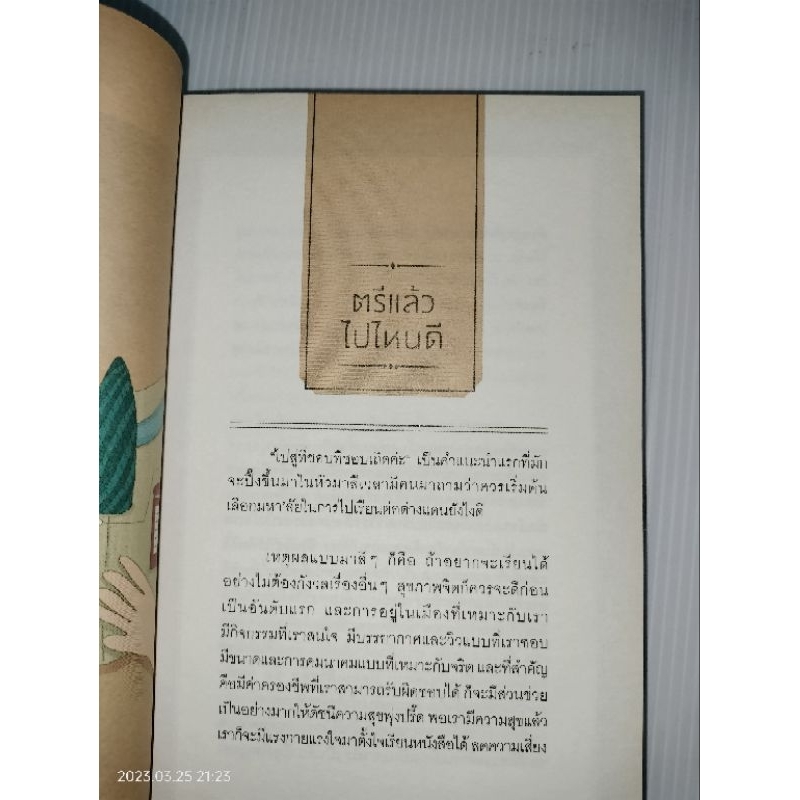 ตรีแล้ว
ไปไหนดี
"ไปสู่ที่ชอบที่ชอบเถิดค่ะ" เป็นคำแนะนำแรกที่มัก
จะปิ๊งขึ้นมาในหัวมาลีเวลามีคนมาถามว่าควรเริ่มต้น
เลือกมหา'ลัยในการไปเรียนต่อต่างแดนยังไงดี
เหตุผลแบบมาลีๆ ก็คือ ถ้าอยากจะเรียนได้
อย่างไม่ต้องกังวลเรื่องอื่นๆ สุขภาพจิตก็ควรจะดีก่อน
เป็นอันดับแรก และการอยู่ในเมืองที่เหมาะกับเรา
มีกิจกรรมที่เราสนใจ มีบรรยากาศและวิวแบบที่เราชอบ
มีขนาดและการคมนาคมแบบที่เหมาะกับจริต และที่สำคัญ
คือมีค่าครองชีพที่เราสามารถรับผิดชอบได้ ก็จะมีส่วนช่วย
เป็นอย่างมากให้ดัชนีความสุขพุ่งปรี๊ด พอเรามีความสุขแล้ว
เราก็จะมีแรงกายแรงใจมาตั้งใจเรียนหนังสือได้ ลดความเสี่ยง
2023.03.25 21:23